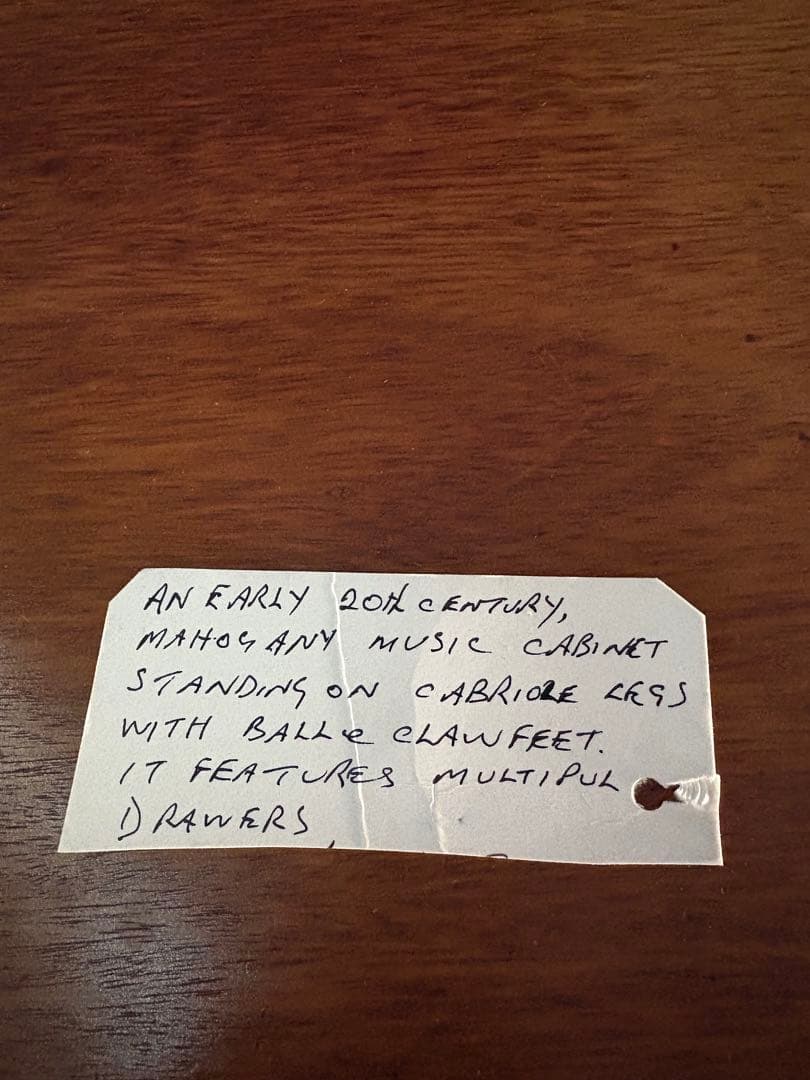 AN EARLY 20th CENTURY,
MAHOGANY MUSIC CABINET
STANDING ON CABRIOLE LEGS
WITH BALL & CLAW FEET.
IT FEATURES MULTIPUL
DRAWERS